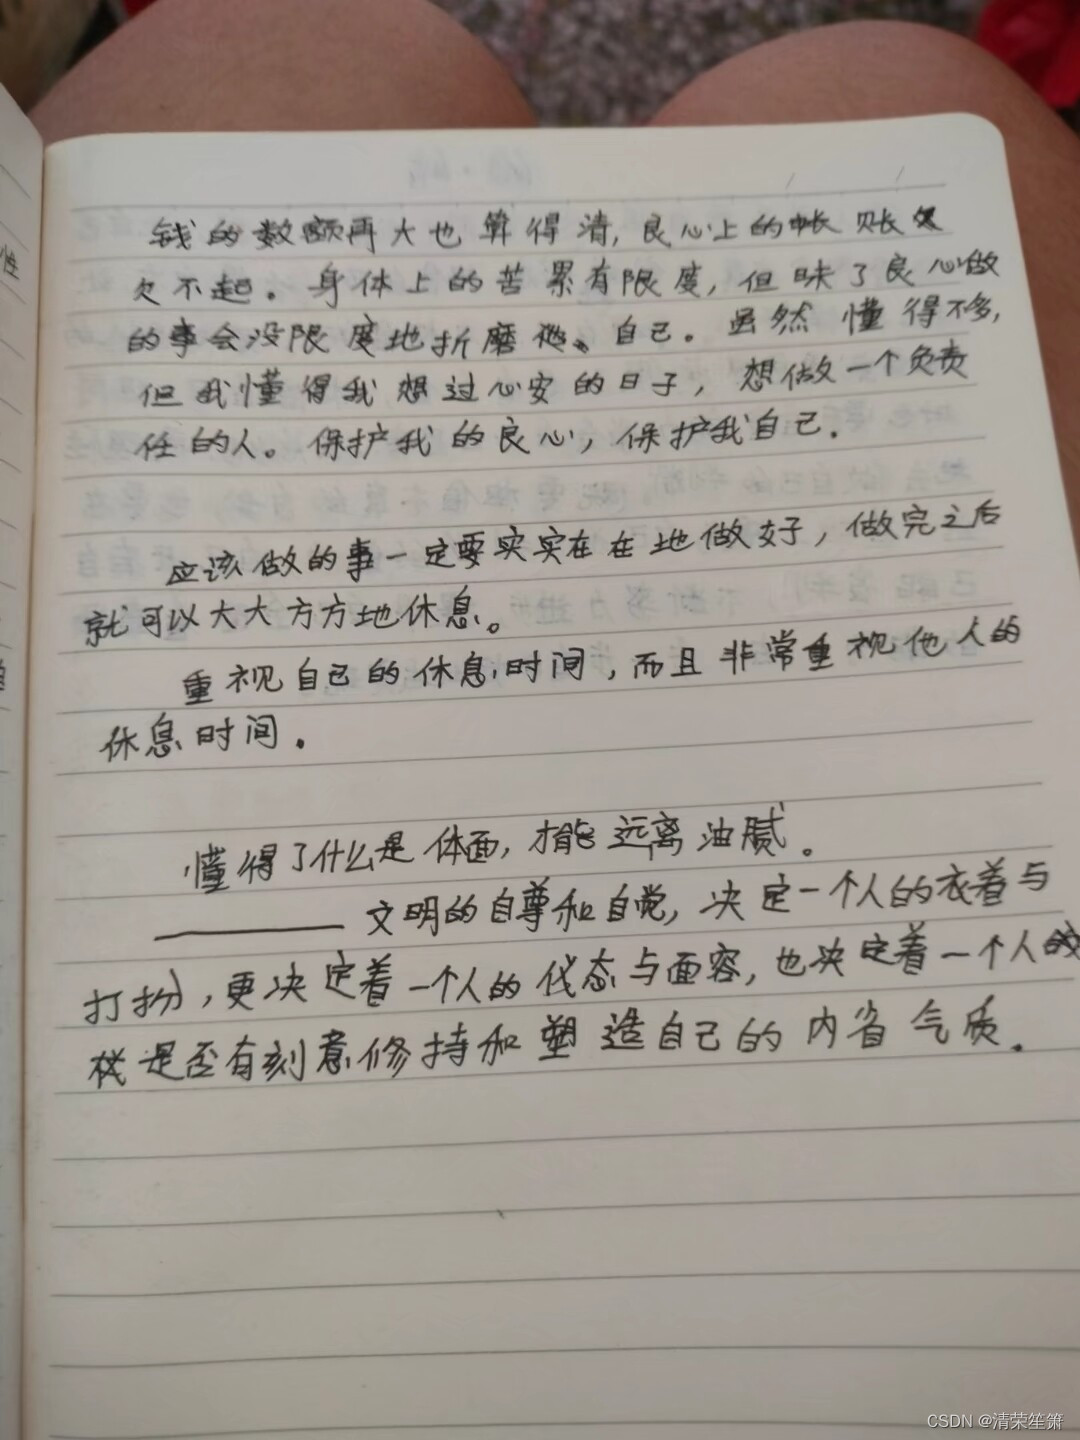 钱的数额再大也算得清，良心上的帐账
欠不起。身体上的苦累有限度，但昧了良心做
的事会没限度地折磨 自己。虽然懂得不多，
但我懂得我想过心安的日子，想做一个负责
任的人。保护我的良心，保护我自己.
应该做的事一定要实实在在地做好，做完之后
就可以大大方方地休息。
重视自己的休息时间，而且非常重视他人的
休息时间.
懂得了什么是体面，才能远离油腻.
——文明的自尊和自觉，决定一个人的衣着与
打扮，更决定着一个人的仪态与面容，也决定着一个人的
是否有刻意修持和塑造自己的内省气质.
性
CSDN @清荣笙箫